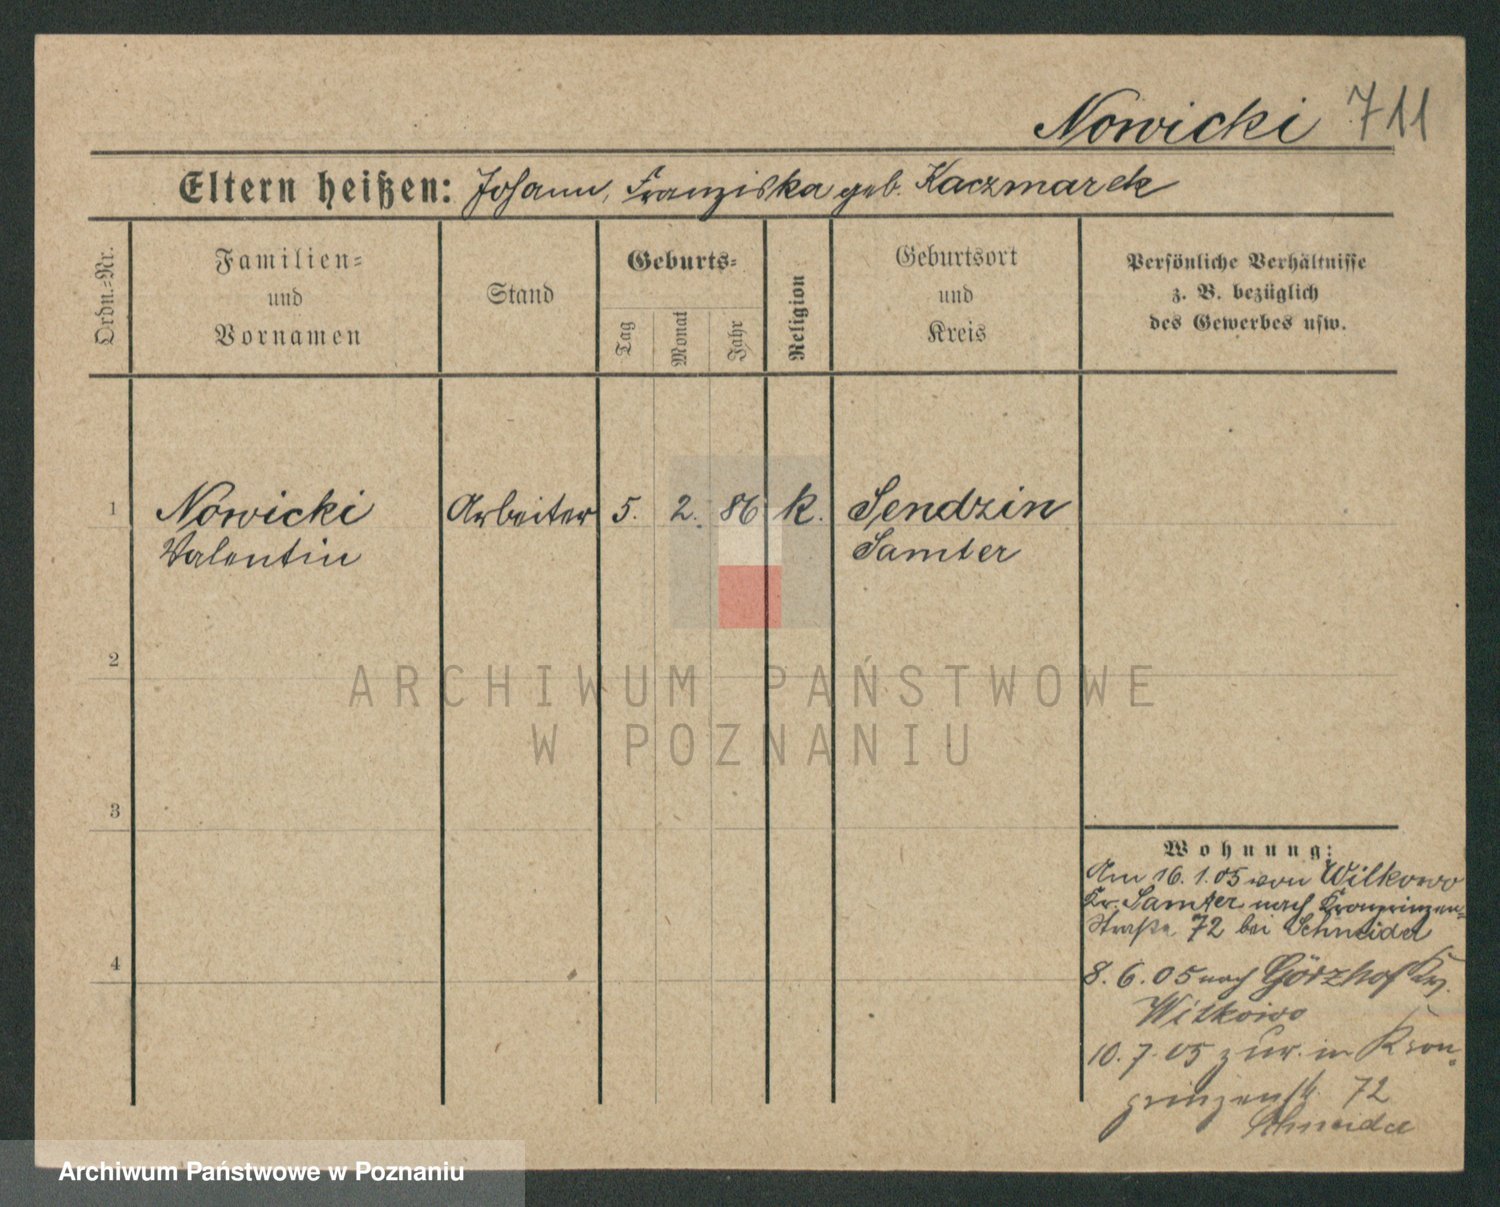 Nowicki 711
Eltern heißen: Johann, Franziska geb. Kaczmarek
Ordn.-Nr.
Familien-
und
Vornamen
Stand
Geburts-
Tag
Monat
Jahr
Religion
Geburtsort
und
Kreis
Persönliche Verhältnisse
z. B. bezüglich
des Gewerbes usw.
1 Nowicki Arbeiter 5. 2. 86 k. Sendzin
Valentin Samter
2
ARCHIWUM PAŃSTWOWE
W POZNANIU
3
Wohnung:
Am 16.1.05 von Wilkowo
Kr. Samter nach Kronprinzen-
Straße 72 bei Schneider
4
8.6.05 nach Görzhof Kr.
Witkowo
10.7.05 zur. in Kron-
prinzenstr. 72
Schneider
Archiwum Państwowe w Poznaniu